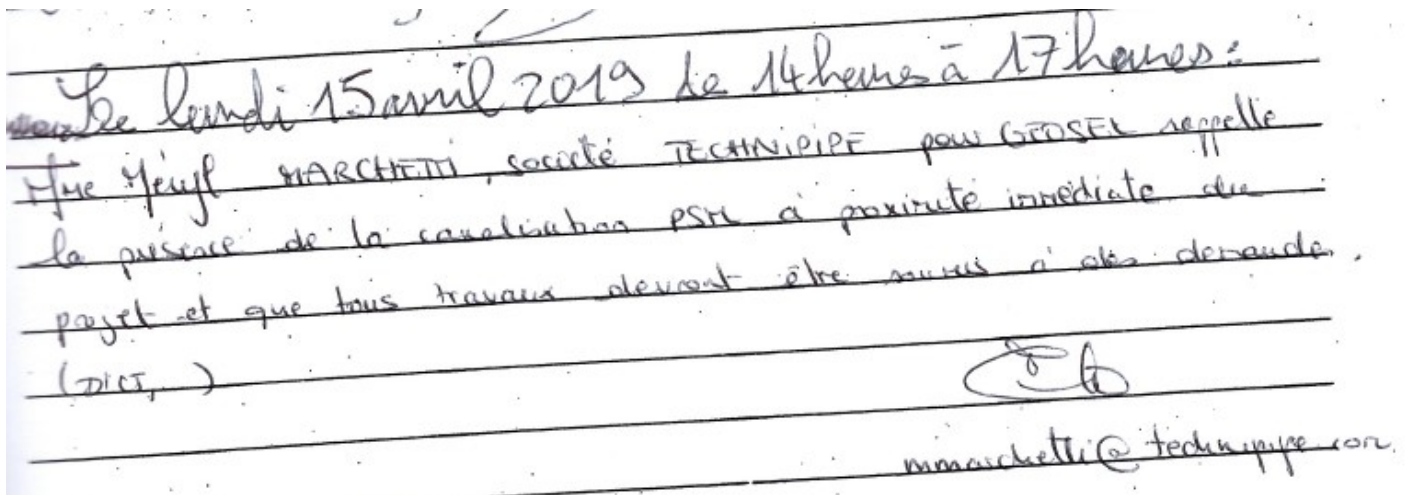 Le lundi 15 avril 2019 de 14 heures à 17 heures :
Mme Méryl MARCHETTI, société TECHNIPIPE pour GEOSEL rappelle
la présence de la canalisation PSM à proximité immédiate du
projet et que tous travaux devront être soumis à des demande.
(DICT, )
mmarchetti@technipipe.com